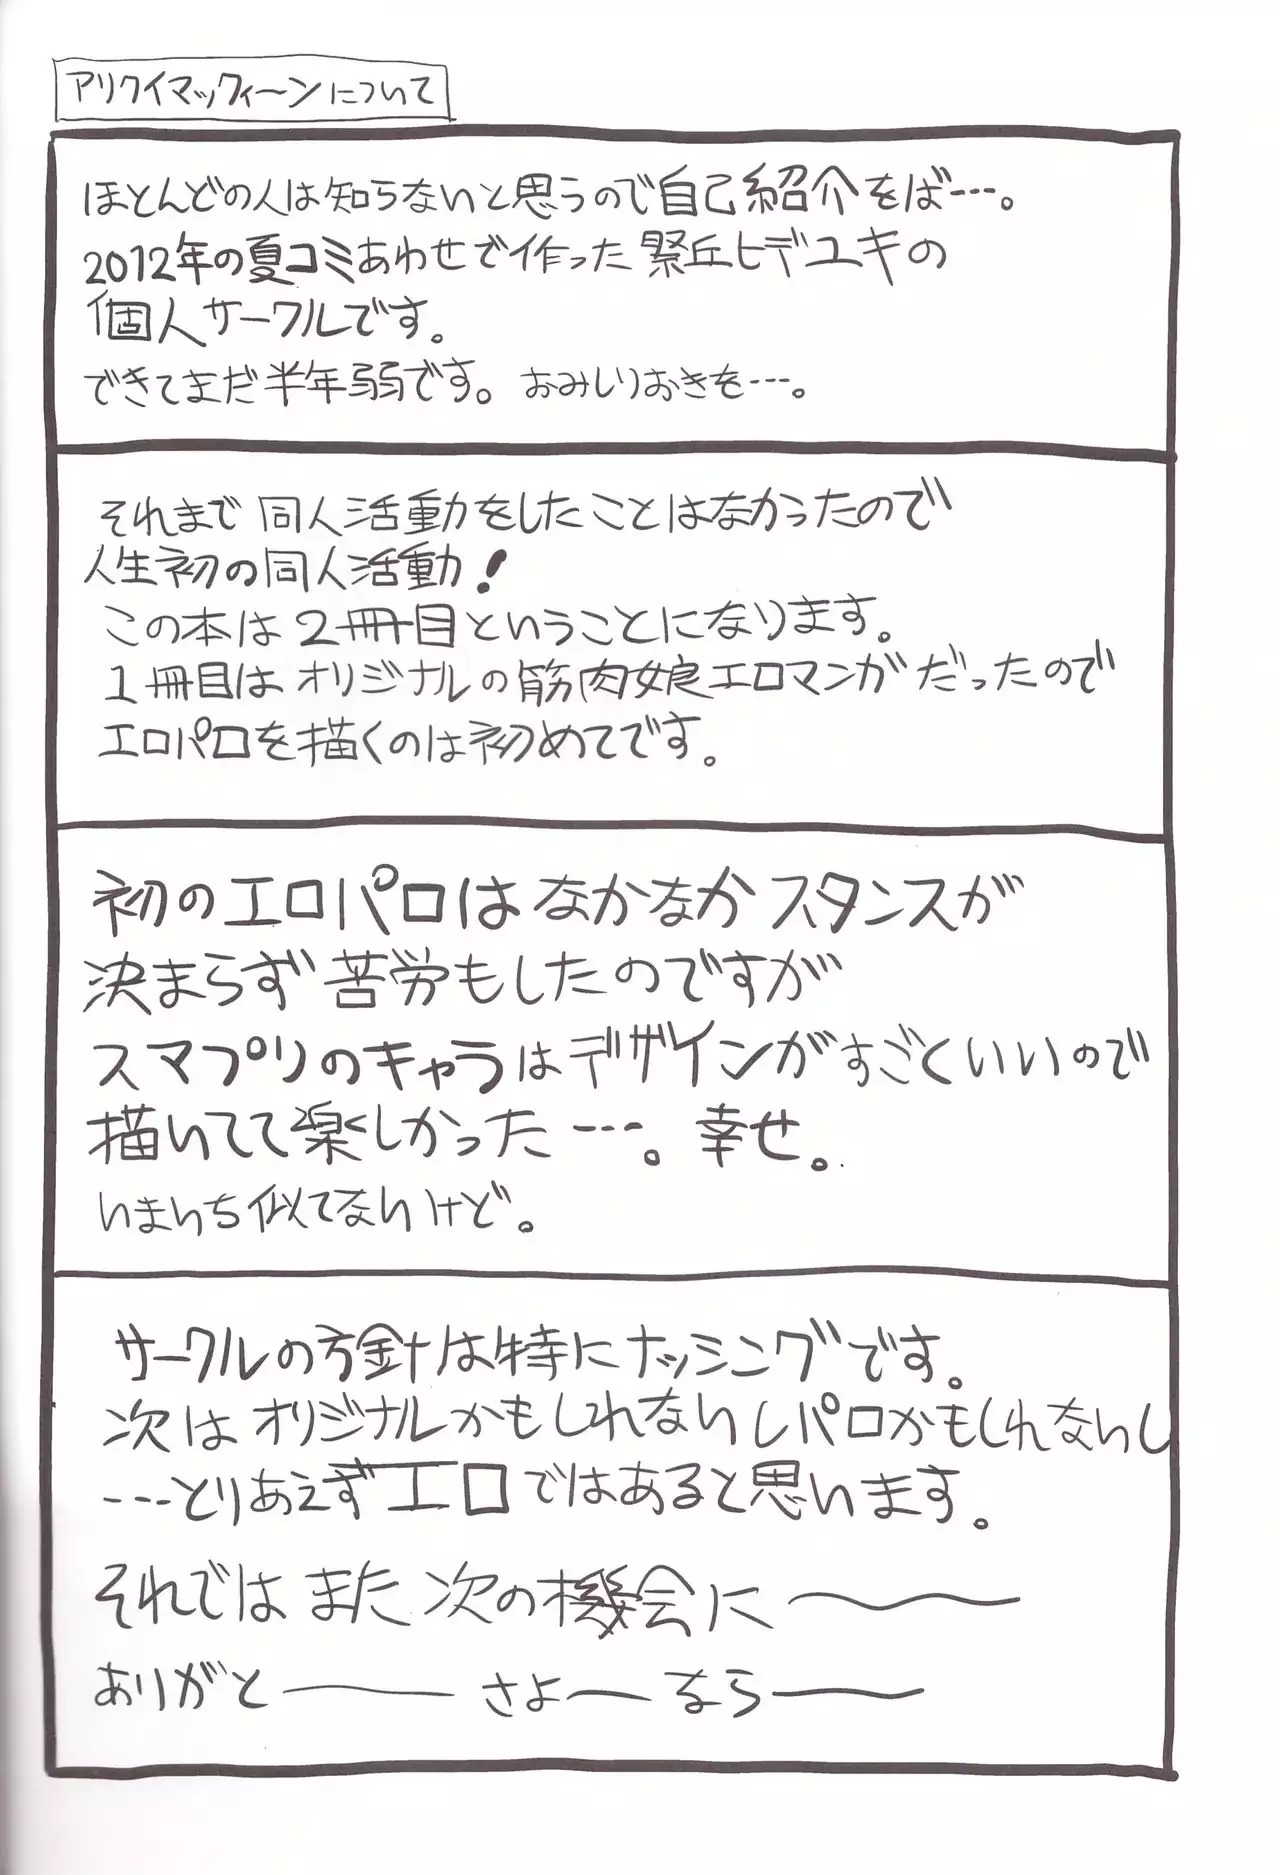 アリクイマックィーンについて
ほとんどの人は知らないと思うので自己紹介をば…。
2012年の夏コミあわせで作った 丘ヒデユキの
個人サークルです。
できてまだ半年弱です。おみしりおきを…。
それまで同人活動をしたことはなかったので
人生初の同人活動!
この本は2冊目ということになります。
1冊目はオリジナルの筋肉娘エロマンガだったので
エロパロを描くのは初めてです。
初のエロパロはなかなかスタンスが
決まらず苦労もしたのですが
スマプリのキャラはデザインがすごくいいので
描いてて楽しかった…。幸せ。
いまいち似てないけど。
サークルの方針は特にナッシングです。
次はオリジナルかもしれないしパロかもしれないし
…とりあえずエロではあると思います。
それではまた次の機会に〜
ありがと――さよ―なら――